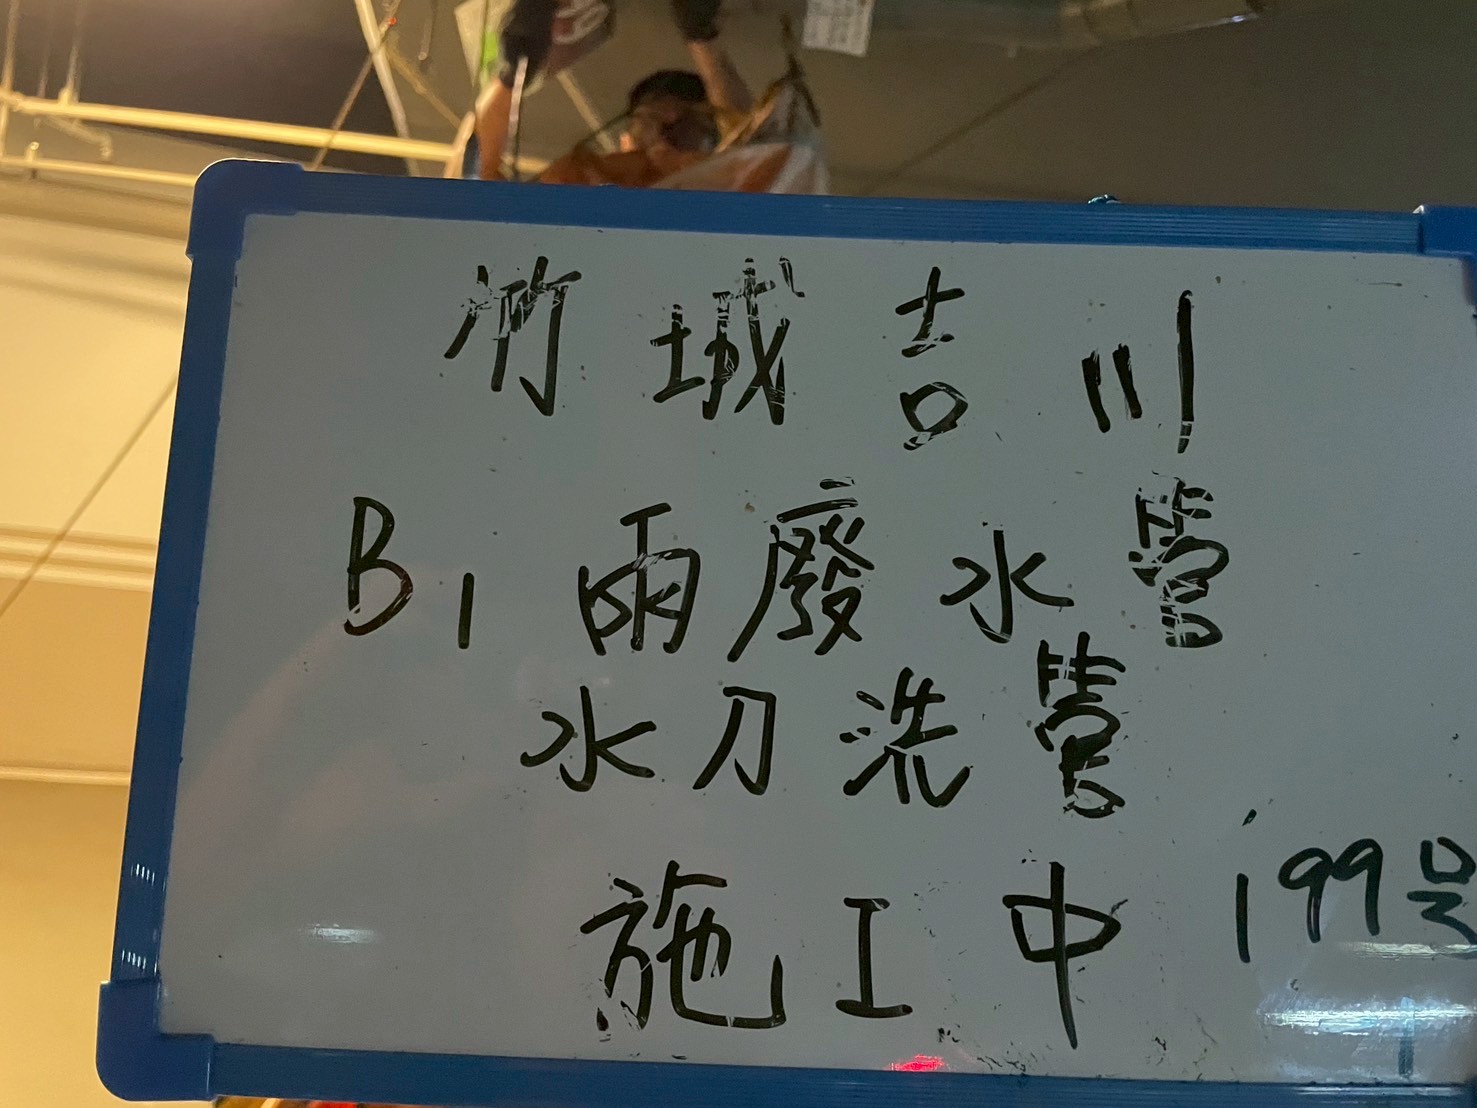 竹城吉川
B1雨廢水管
水刀洗管
施工中 199号